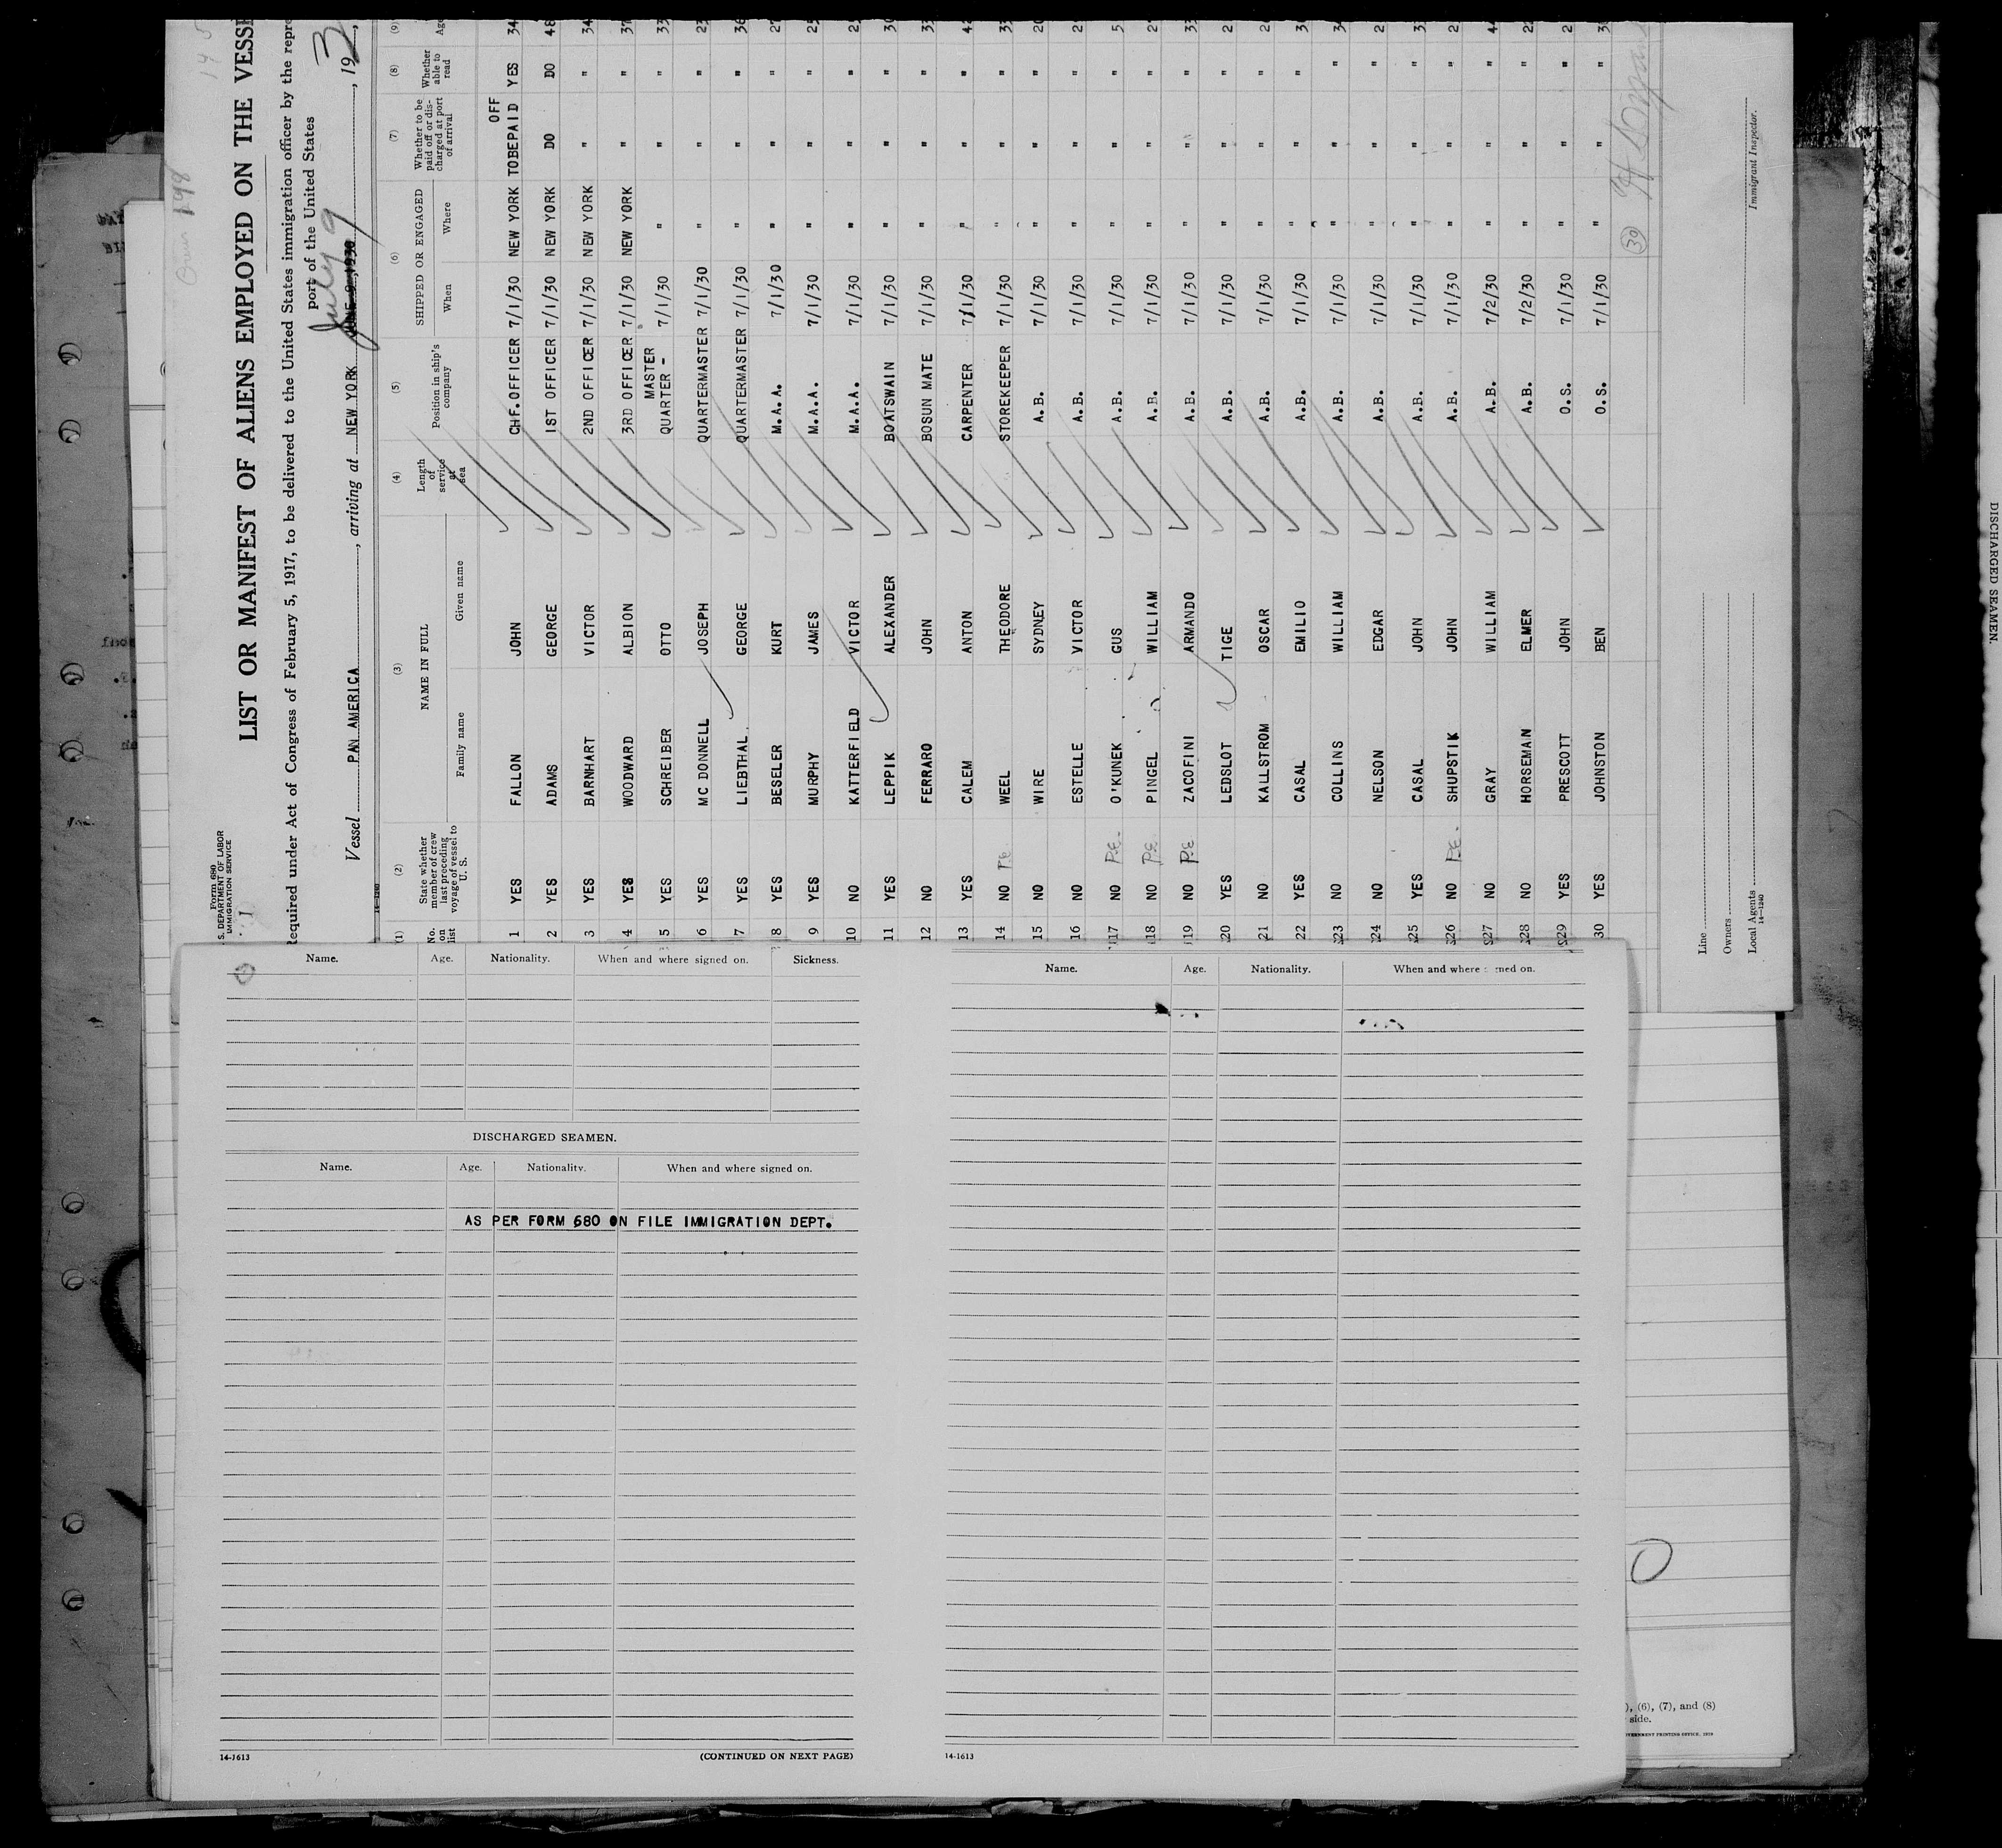 Form 680
S. DEPARTMENT OF LABOR
IMMIGRATION SERVICE
1
LIST OR MANIFEST OF ALIENS EMPLOYED ON THE VESSE
Required under Act of Congress of February 5, 1917, to be delivered to the United States immigration officer by the repre
port of the United States
Vessel PAN AMERICA, arriving at NEW YORK July 9, 193
14-1240
(1) (2) (3) (4) (5) (6) (7) (8) (9)
No. on list State whether member of crew last preceding voyage of vessel to U. S. NAME IN FULL Family name Given name Length of service at sea Position in ship's company SHIPPED OR ENGAGED When Where Whether to be paid off or discharged at port of arrival Whether able to read Age
1 YES FALLON JOHN CHF.OFFICER 7/1/30 NEW YORK TOBEPAID OFF YES 34
2 YES ADAMS GEORGE 1ST OFFICER 7/1/30 NEW YORK DO DO 48
3 YES BARNHART VICTOR 2ND OFFICER 7/1/30 NEW YORK " " 34
4 YES WOODWARD ALBION 3RD OFFICER 7/1/30 NEW YORK " " 37
5 YES SCHREIBER OTTO QUARTER-MASTER 7/1/30 " " " 33
6 YES MC DONNELL JOSEPH QUARTERMASTER 7/1/30 " " " 23
7 YES LIEBTHAL GEORGE QUARTERMASTER 7/1/30 " " " 36
8 YES BESELER KURT M.A.A. 7/1/30 " " " 27
9 YES MURPHY JAMES M.A.A. 7/1/30 " " " 25
10 NO KATTERFIELD VICTOR M.A.A. 7/1/30 " " " 25
11 YES LEPPIK ALEXANDER BOATSWAIN 7/1/30 " " " 30
12 NO FERRARO JOHN BOSUN MATE 7/1/30 " " " 33
13 YES CALEM ANTON CARPENTER 7/1/30 " " " 42
14 NO P.E. WEEL THEODORE STOREKEEPER 7/1/30 " " " 33
15 NO WIRE SYDNEY A.B. 7/1/30 " " " 20
16 NO ESTELLE VICTOR A.B. 7/1/30 " " " 2
17 NO P.E. O'KUNEK GUS A.B. 7/1/30 " " " 5
18 NO P.E. PINGEL WILLIAM A.B. 7/1/30 " " " 2
19 NO P.E. ZACOFINI ARMANDO A.B. 7/1/30 " " " 33
20 YES LEDSLOT TIGE A.B. 7/1/30 " " " 2
21 NO KALLSTROM OSCAR A.B. 7/1/30 " " " 2
22 YES CASAL EMILIO A.B. 7/1/30 " " " 3
23 NO COLLINS WILLIAM A.B. 7/1/30 " " " 3
24 NO NELSON EDGAR A.B. 7/1/30 " " " 2
25 YES CASAL JOHN A.B. 7/1/30 " " " 3
26 NO P.E. SHUPSTIK JOHN A.B. 7/1/30 " " " 2
27 NO GRAY WILLIAM A.B. 7/2/30 " " " 4
28 NO HORSEMAN ELMER A.B. 7/2/30 " " " 22
29 YES PRESCOTT JOHN O.S. 7/1/30 " " " 2
30 YES JOHNSTON BEN O.S. 7/1/30 " " " 3
30
Line
Owners
Local Agents
14-1240
Immigrant Inspector.
Name. Age. Nationality. When and where signed on. Sickness.
DISCHARGED SEAMEN.
Name. Age. Nationality. When and where signed on.
AS PER FORM 680 ON FILE IMMIGRATION DEPT.
14-1613
(CONTINUED ON NEXT PAGE)
Name. Age. Nationality. When and where signed on.
14-1613
), (6), (7), and (8)
side.
DISCHARGED SEAMEN.